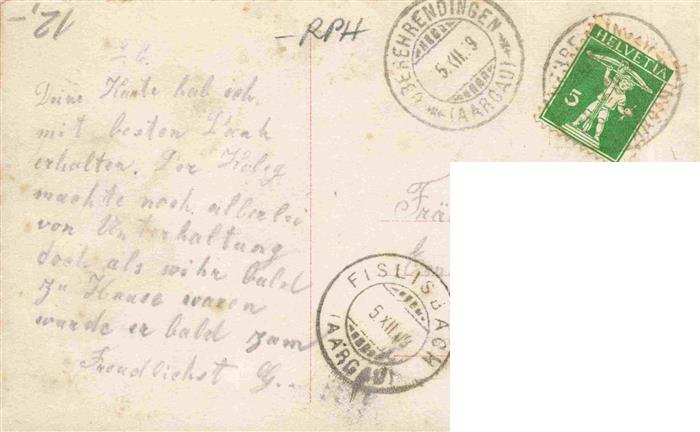 12.-
-RPH
OBEREHRENDINGEN
5.XII.9
(AARGAU)
HELVETIA
5
L. G.
Deine Karte hab ich
mit besten Dank
erhalten. Der Koleg
machte noch allerlei
von Unterhaltung
doch als wihr bald
zu Hause waren
wurde er bald zam
Freudlichst G.
Frä
FISLISBACH
5.XII.09
(AARGAU)